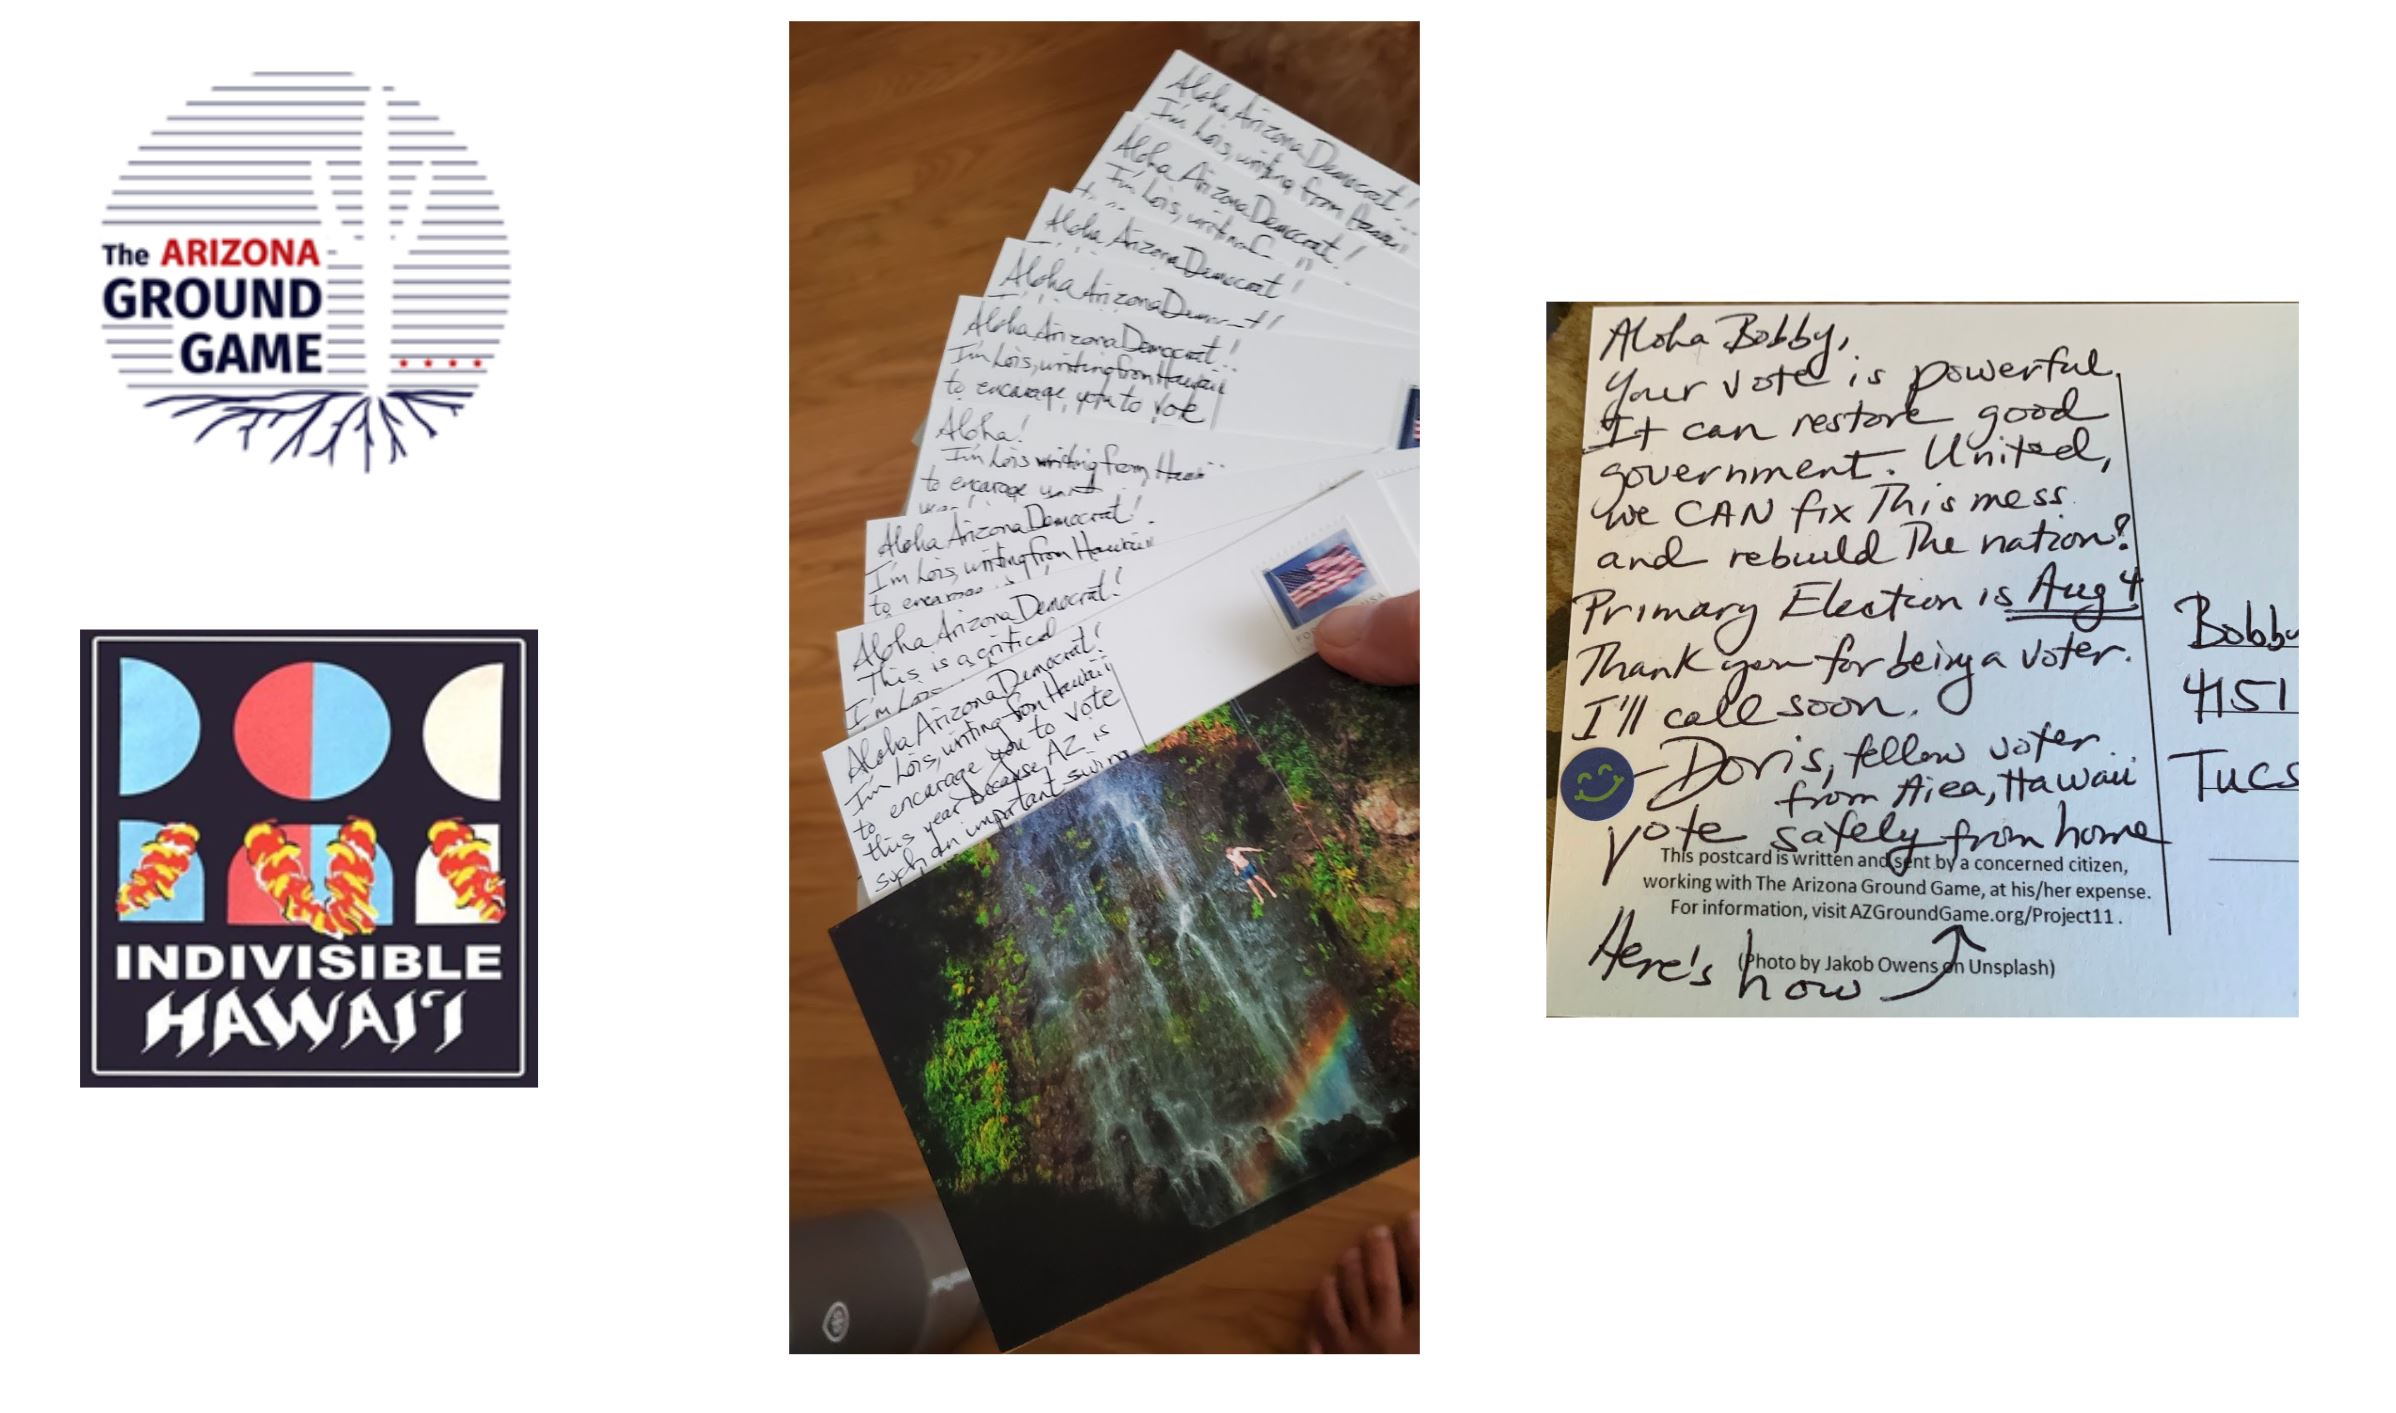 The ARIZONA
GROUND
GAME
INDIVISIBLE
HAWAI'I
Aloha Arizona Democrat!
I'm Lois, writing from
Aloha Arizona Democrat!
I'm Lois,
Aloha Arizona Democrat!
Aloha Arizona
Aloha Arizona Democrat!
I'm Lois, writing from Hawaii
to encarage you to vote
Aloha!
I'm Lois writing from
to encarage
Aloha Arizona Democrat!
I'm Lois, writing from Hawaii
to
Aloha Arizona Democrat!
This is a critical
I'm Lois
Aloha Arizona Democrat!
I'm Lois, writing from Hawaii
to encarage you to vote
this year because AZ is
such an important swing
USA
Aloha Bobby,
Your vote is powerful.
It can restore good
government. United,
we CAN fix This mess
and rebuild The nation!
Primary Election is Aug 4
Thank you for being a voter.
I'll call soon.
- Doris, fellow voter
from Aiea, Hawaii
Vote safely from home
This postcard is written and sent by a concerned citizen,
working with The Arizona Ground Game, at his/her expense.
For information, visit AZGroundGame.org/Project11.
Here's how
(Photo by Jakob Owens on Unsplash)
Bobby
4151
Tucs